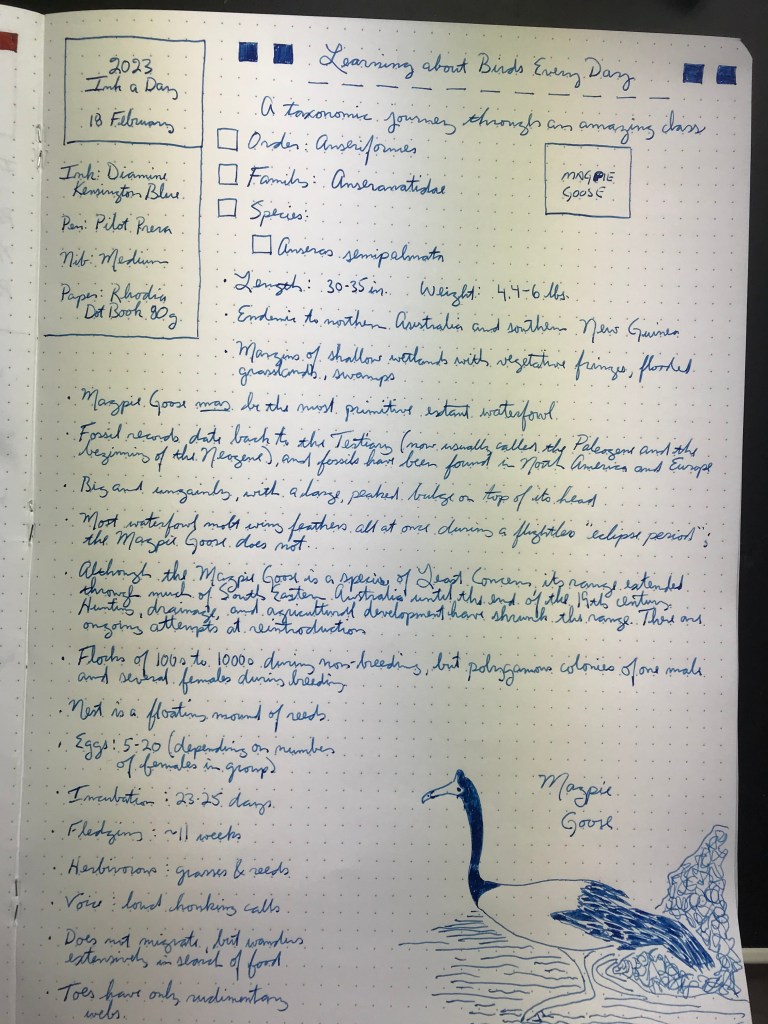 2023
Ink a Day
18 February
Ink: Diamine
Kensington Blue
Pen: Pilot Prera
Nib: Medium
Paper: Rhodia
Dot Book 80g
Learning about Birds Every Day
A taxonomic journey through an amazing class
Order: Anseriformes
Family: Anseranatidae
Species:
Anseras semipalmata
MAGPIE
GOOSE
· Length: 30-35 in. Weight: 4.4-6 lbs.
· Endemic to northern Australia and southern New Guinea
· Margins of shallow wetlands with vegetative fringes, flooded
grasslands, swamps
· Magpie Goose may be the most primitive extant waterfowl
· Fossil records date back to the Tertiary (now usually called the Paleogene and the
beginning of the Neogene), and fossils have been found in North America and Europe
· Big and ungainly, with a large, peaked bulge on top of its head
· Most waterfowl molt wing feathers all at once during a flightless "eclipse period";
the Magpie Goose does not.
· Although the Magpie Goose is a species of Least Concern, its range extended
through much of South Eastern Australia until the end of the 19th century.
Hunting, drainage, and agricultural development have shrunk the range. There are
ongoing attempts at reintroduction
· Flocks of 100s to 1000s during non-breeding, but polygamous colonies of one male
and several females during breeding
· Nest is a floating mound of reeds
· Eggs: 5-20 (depending on number
of females in group)
· Incubation: 23-25 days
· Fledging: ~11 weeks
· Herbivorous: grasses & reeds
· Voice: loud honking calls
· Does not migrate, but wanders
extensively in search of food
· Toes have only rudimentary
webs.
Magpie
Goose